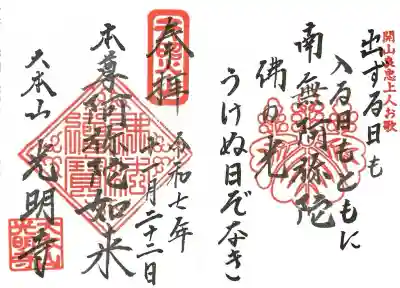 開山良忠上人お歌
出ずる日も
入る日もともに
南無阿弥陀
佛の光
うけぬ日ぞなき
奉拝
令和七年
十一月二十二日
本尊阿弥陀如来
大本山 光明寺